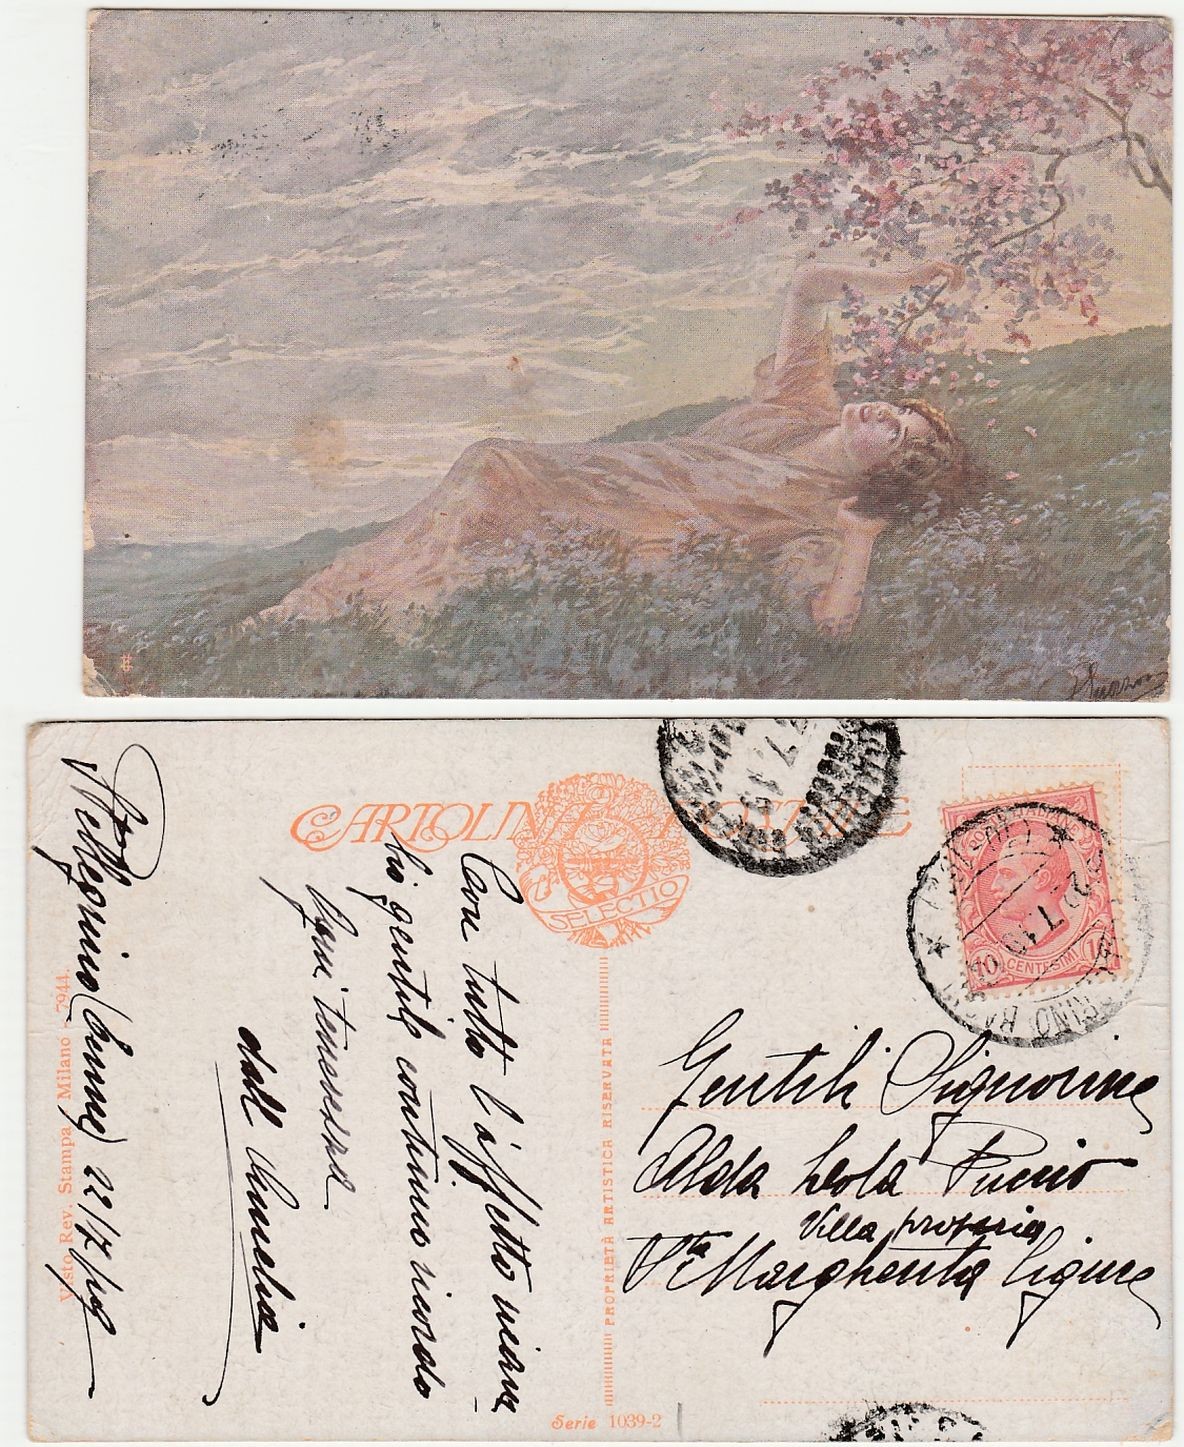 CARTOLINA POSTALE
SELECTIO
10 CENTESIMI 10
Gentili Signorine
Alda Leola Puccio
Villa propria
Sta Margherita Ligure
Con tutto l'affetto invia
gentile continuo ricordo
Ogni tenerezza
dall' Amelia
22/7/19
PROPRIETÀ ARTISTICA RISERVATA
Visto Rev. Stampa, Milano - 7944.
Serie 1039-2